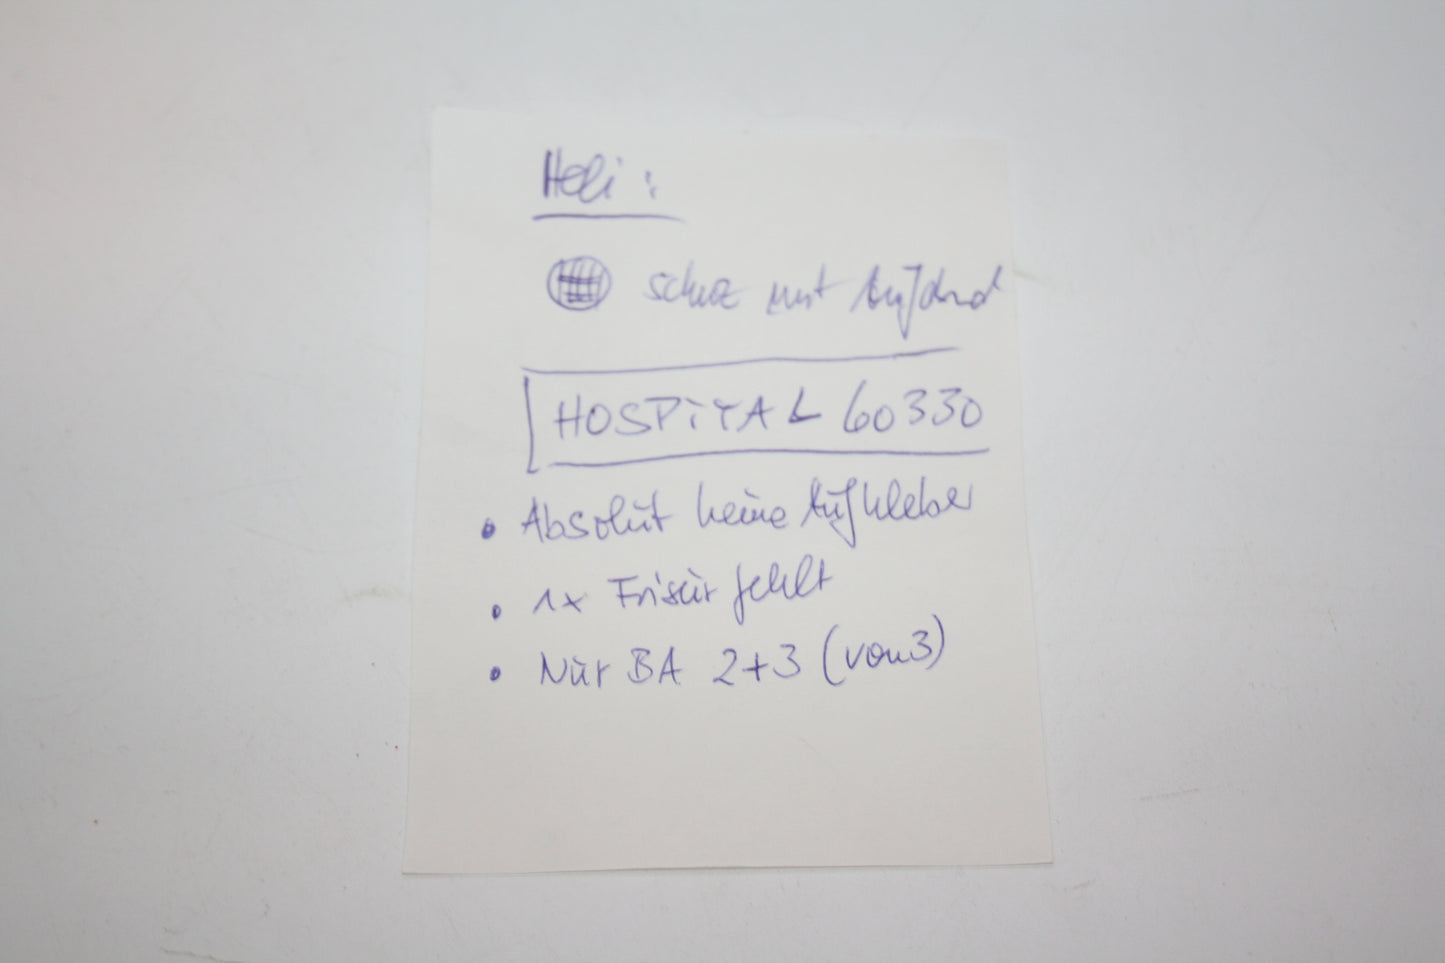 Heli:
mit
HOSPITAL 60330
• Absolut keine Aufkleber
• 1x Frisur fehlt
• Nur BA 2+3 (von 3)